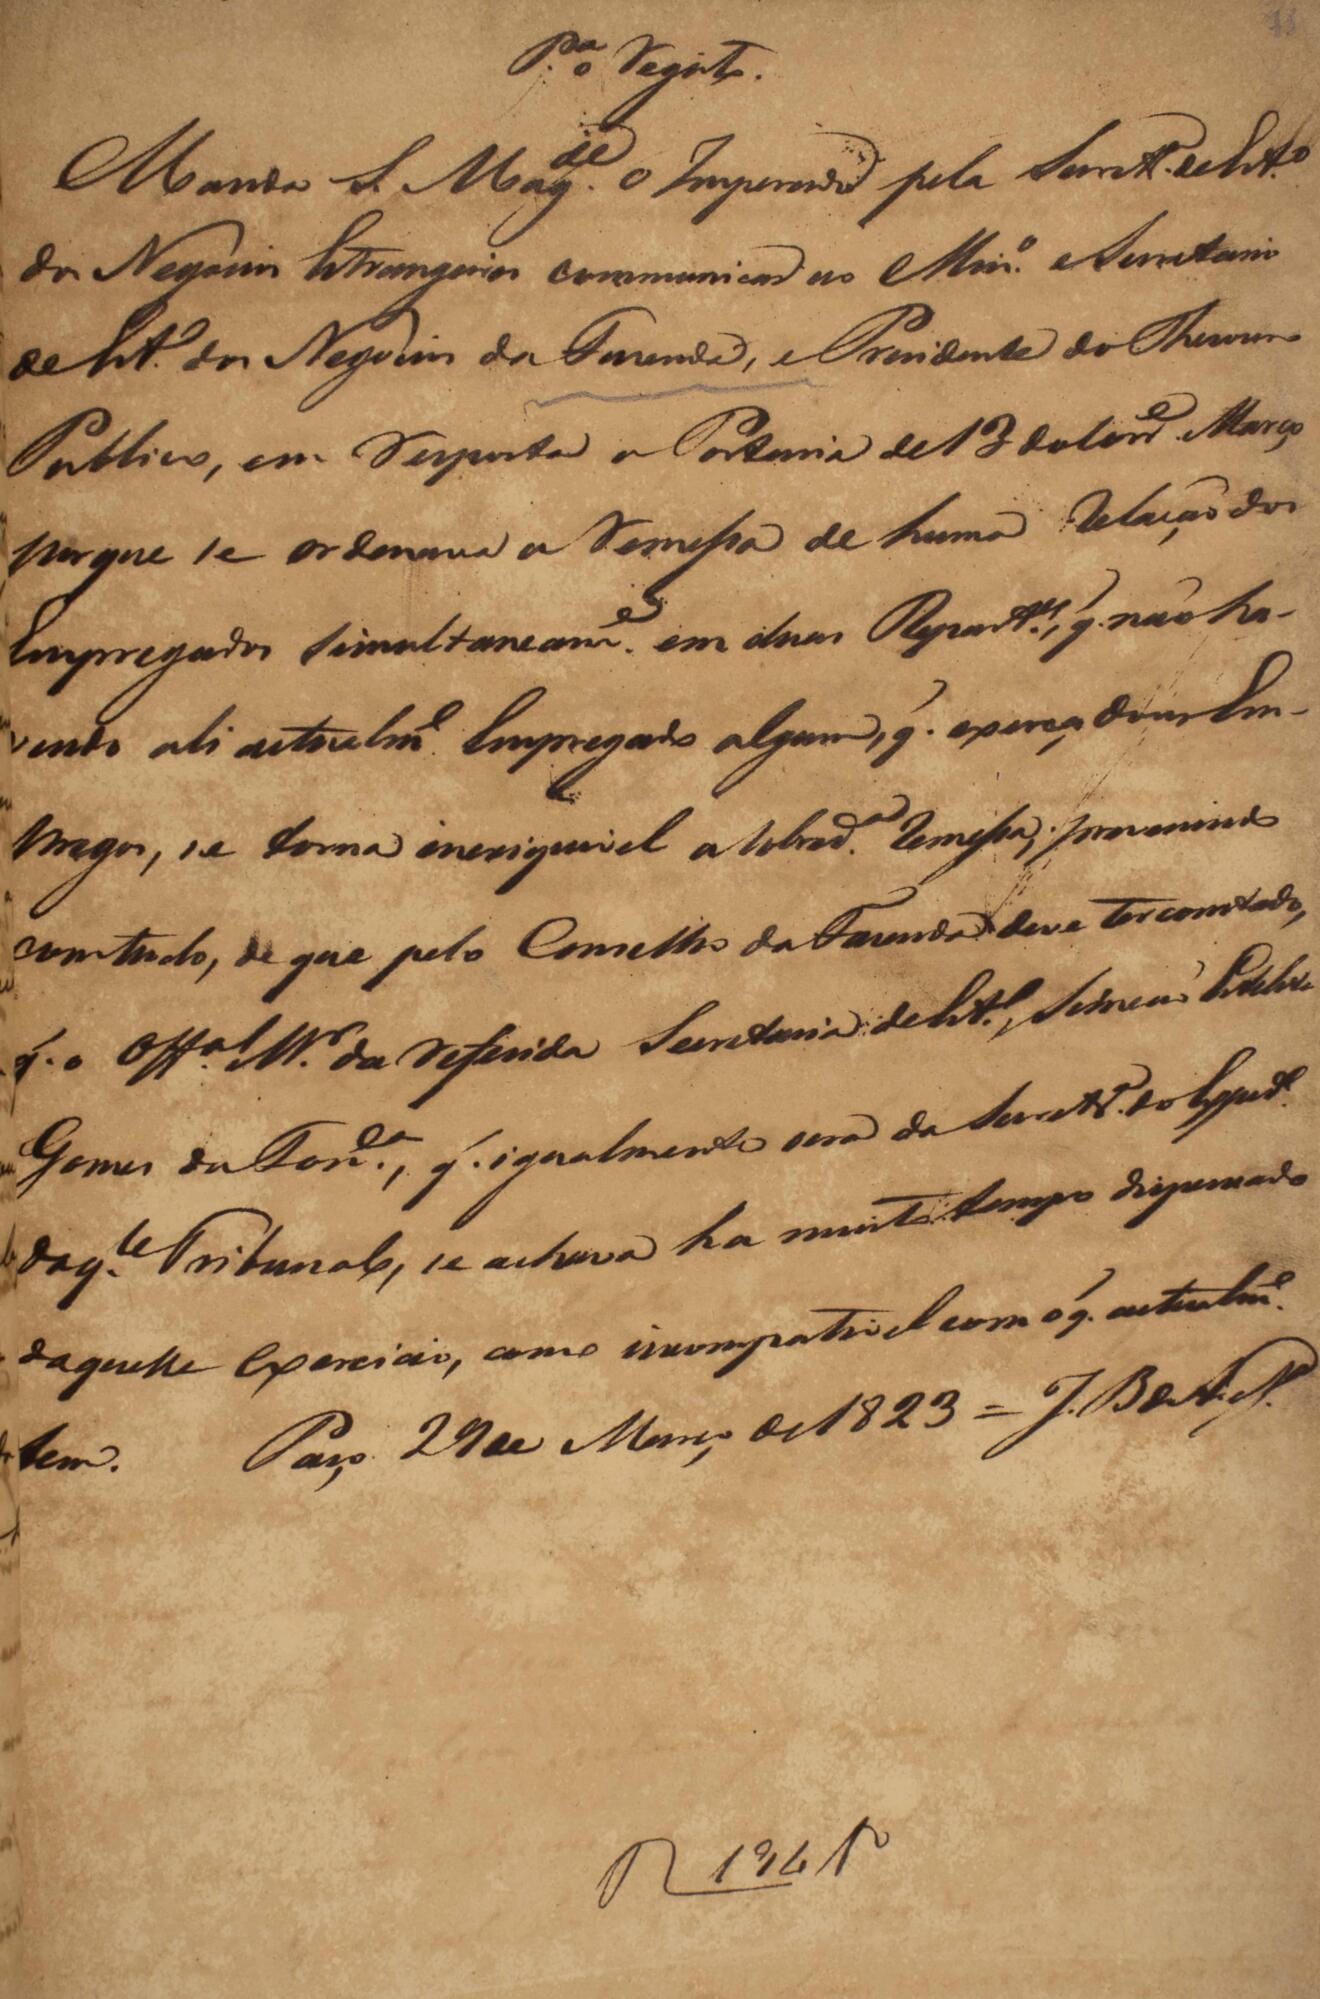 P.ª o Registo.
Manda S. Mag.de o Imperador pela Secret.ª de Est.o
dos Negocios Estrangeiros communicar ao Min.o e Secretario
de Est.o dos Negocios da Fazenda, e Presidente do Thesouro
Publico, em resposta a Portaria de 13 do corr.e Março
porque se ordenava a remessa de huma relação dos
Empregados simultaneam.e em duas Repart.es, q. não ha-
vendo ali actualm.e Empregado algum, q. exerça dous Em-
pregos, se torna inexiquivel a sobred.ª remessa; prevenindo
comtudo, de que pelo Conselho da Fazenda deve ter constado,
q. o Off.al M.r da referida Secretaria de Est.o, Simeão Estelita
Gomes da Fon.ca, q. igualmente o era da Secret.ª do Exped.e
daq.le Tribunal, se achava ha muito tempo dispensado
daquelle Exercicio, como incompativel com o q. actualm.e
tem. Paço 29 de Março de 1823 = J. B. de A. S.
R 194